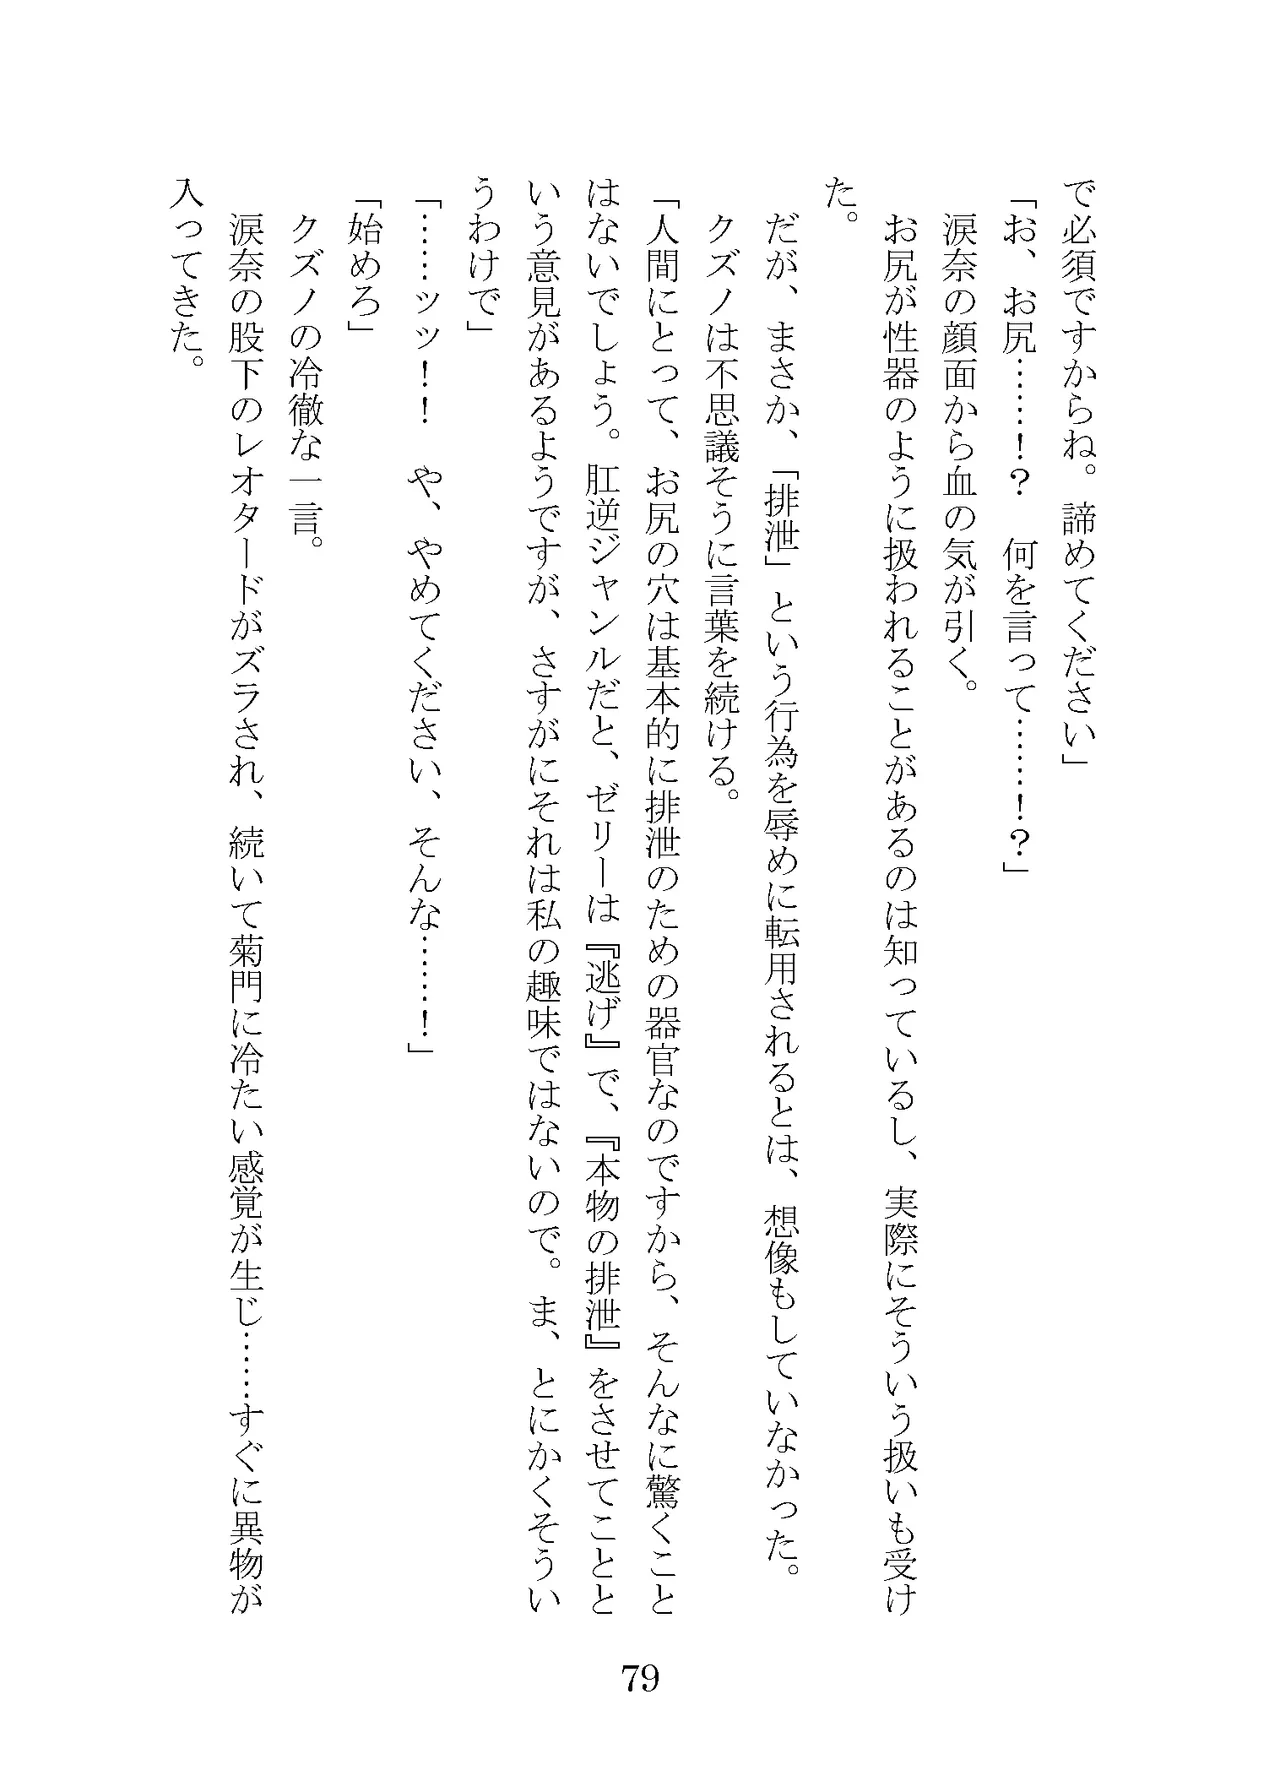 で必須ですからね。諦めてください」
「お、お尻……！？　何を言って……！？」
涙奈の顔面から血の気が引く。
お尻が性器のように扱われることがあるのは知っているし、実際にそういう扱いも受け
た。
だが、まさか、「排泄」という行為を辱めに転用されるとは、想像もしていなかった。
クズノは不思議そうに言葉を続ける。
「人間にとって、お尻の穴は基本的に排泄のための器官なのですから、そんなに驚くこと
はないでしょう。肛逆ジャンルだと、ゼリーは『逃げ』で、『本物の排泄』をさせてことと
いう意見があるようですが、さすがにそれは私の趣味ではないので。ま、とにかくそうい
うわけで」
「……ッッ！！　や、やめてください、そんな……！」
「始めろ」
クズノの冷徹な一言。
涙奈の股下のレオタードがズラされ、続いて菊門に冷たい感覚が生じ……すぐに異物が
入ってきた。
79